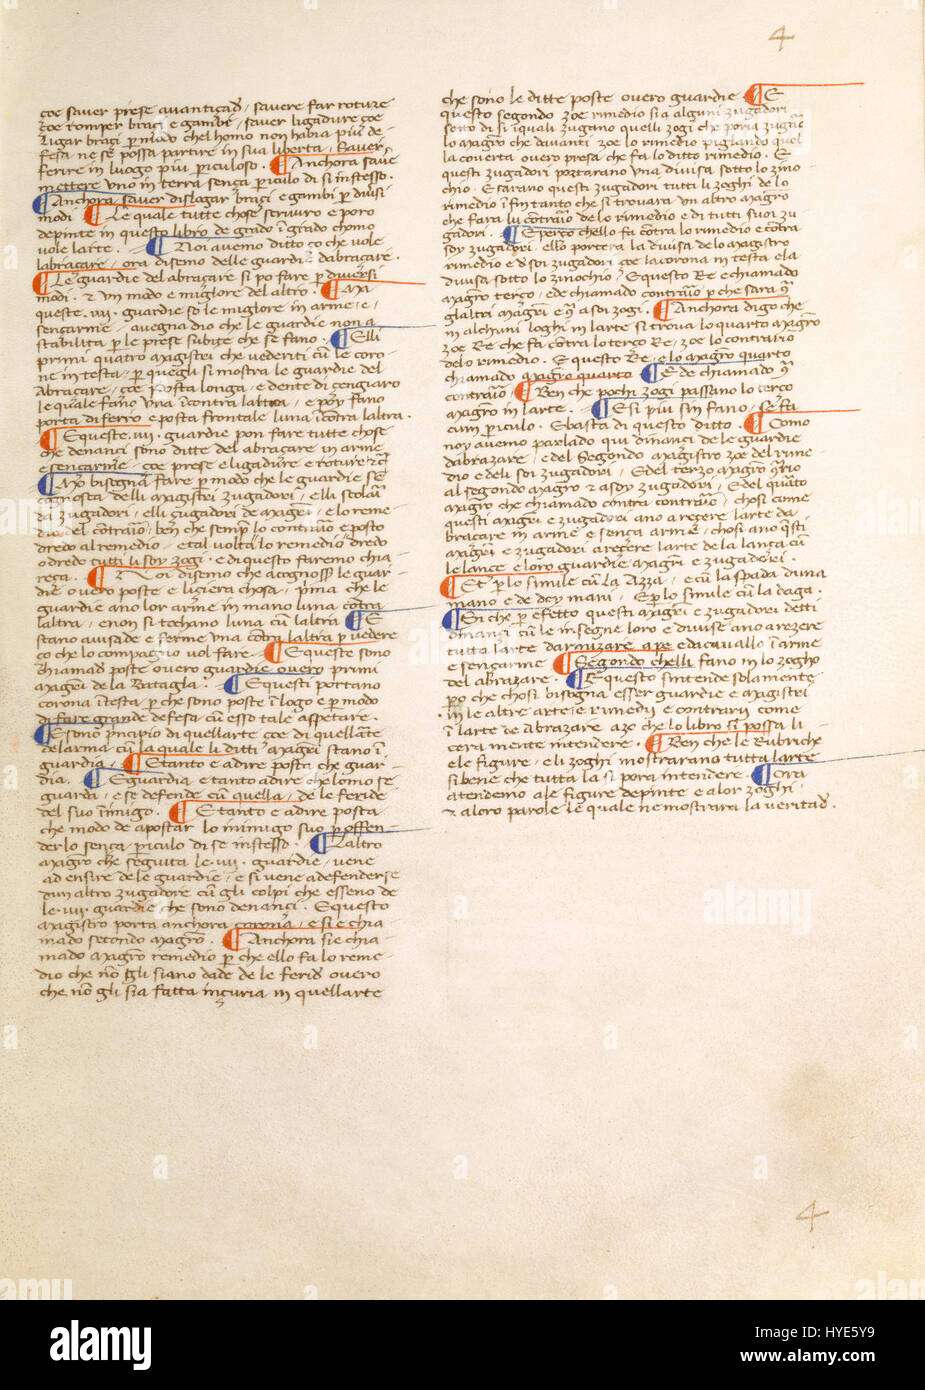 4
çoe saver prese avantiçade, savere far roture
çoe romper braçi e gambi, saver ligadure çoe
ligar braçi per modo chel homo non habia più de-
fesa ne se possa partire in sua liberta. Saver
ferire in luogo più periculoso. Anchora save
mettere uno in terra sença periculo di si instesso.
Anchora saver dislogar braçi e gambi per divisi
modi. Le quale tutte chose scrivero e poro
depinte in questo libro de grado in grado chomo
vole larte. Noi avemo ditto ço che vole
labraçare, ora disemo delle guardie dabraçare.
Le guardie del abraçare si po fare per diversi
modi. Et un modo e migliore del altro. Ma
queste .iiii. guardie so le migliore in arme, e,
sençarme, avegna dio che le guardie non a
stabilita per le prese subiçe che se fano. E lli
primi quatro magistri che vederiti cum le coro-
ne in testa, per quegli si mostra le guardie del
abraçare, çoe posta longa, e dente di çengiaro
le quale fano una incontra laltra, e poy fano
porta di ferro e posta frontale luna incontra laltra.
E queste .iiii. guardie pon fare tutte chose
che denançi sono ditte del abraçare in arme
e sençarme, çoe prese e ligadure e roture etc.
Mo bisogna fare per modo che le guardie se
cognosca delli magistri zugadori, e lli scolari
da zugadori, e lli çugadori da magistri, e lo reme-
dio del contrario, ben che sempre lo contrario e posto
dredo al remedio, e tal volta lo remedio dredo
o dredo tutti li soy zogi, e di questo faremo chia
reça. Noi disemo che a cognosser le guar-
die overo poste e liçiera chosa, prima che le
guardie ano lor arme in mano luna contra
laltra, e non si tochano luna cum laltra. E
stano avisade e ferme una contra laltra per vedere
ço che lo compagno vol fare. E queste sono
chiamade poste overo guardie overo primi
magistri de la Batagla. E questi portano
corona in testa, per che sono poste in logo e per modo
di fare grande defesa cum esso tale aspetare.
E sono principio di quellarte çoe di quellarte
delarma cum la quale li ditti magistri stano in
guardia. E tanto e a dire posta che guar-
dia. E guardia e tanto a dire che lomo se
guarda, e se defende cum quella, de le feride
del suo inimigo. E tanto e a dire posta
che modo de apostar lo inimigo suo per offen-
derlo sença periculo di se instesso. Laltro
magistro che seguita le .iiii. guardie, vene
ad ensire de le guardie, e si vene a defenderse
dun altro zugadore cum gli colpi che esseno de
le .iiii. guardie che sono denançi. E questo
magistro porta anchora corona, e si e chia
mado secondo magistro. Anchora si e chia
mado magistro remedio per che ello fa lo reme-
dio che non gli siano dade de le feride overo
che non gli sia fatta inçuria in quellarte
che sono le ditte poste overo guardie. E
questo segondo zoe rimedio si a alguni zugadori
sotto di si i quali zugano quelli zogi che poria zugare
lo magistro che davanti zoe lo rimedio piglando quel
la coverta overo presa che fa lo ditto rimedio. E
questi zugadori portarano una divisa sotto lo zino
chio. E farano questi zugadori tutti li zoghi de lo
rimedio in fin tanto che si trovara un altro magistro
che fara lu contrario de lo rimedio e di tutti suoi zu
gadori. E perço chello fa contra lo rimedio e contra
soy zugadori, ello portera la divisa de lo magistro
rimedio e de soi zugadori çoe la corona in testa e la
divisa sotto lo zinochio. E questo Re e chiamado
magistro terço, e de chiamado contrario per che sara contra
gl altri magistri e contra a soi zogi. Anchora digo che
in alchuni loghi in larte si trova lo quarto magistro
zoe Re che fa contra lo terço Re, zoe lo contrario
delo rimedio. E questo Re, e lo magistro quarto
chiamado magistro quarto. E de chiamado contra
contrario. Ben che pochi zogi passano lo terço
magistro in larte. E si più sin fano, se fa
cum periculo. E basta di questo ditto. Como
noy avemo parlado qui dinançi de le guardie
dabrazare, e del segondo magistro zoe del rime-
dio e deli soi zugadori, e del terzo magistro contrario
al segondo magistro et a soy zugadori, e del quarto
magistro che chiamado contra contrario, chosi come
questi magistri e zugadori ano a reçere larte da
braçare in arme e sença arme, chosi ano questi
magistri e zugadori a reçere larte de la lança cum
le lance e loro guardie magistri e zugadori.
Et per lo simile cum la Azza, e cum la spada duna
mano e de doy mani. E per lo simile cum la daga.
Si che per efetto questi magistri e zugadori detti
dinançi cum le insegne loro e divise ano a rezere
tutta larte darmizare a pe e da cavallo in arme
e sençarme. Segondo ch'elli fano in lo zogho
del abrazare. E questo sintende solamente
per ço che chosi bisogna esser guardie e magistri
in le altre arte e rimedii e contrarii como
in larte de abrazare aço che lo libro si possa li
çera mente intendere. Ben che le Rubriche
e le figure, e li zoghi mostrarano tutta larte
si bene che tutta la si pora intendere. Ora
atendemo a le figure depinte e a lor zoghi,
et a loro parole le quale ne mostrara la veritade.
4
alamy
Image ID: HYE5Y9
www.alamy.com